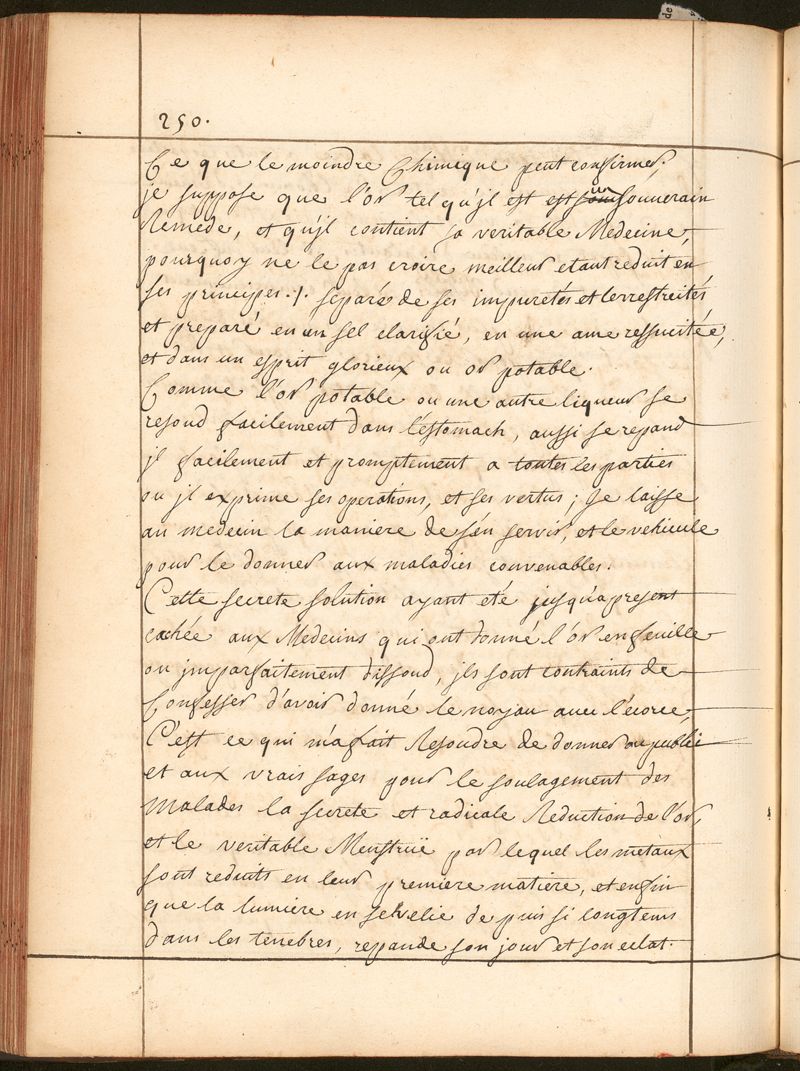 250.
Ce que le moindre Chimique peut confirmer,
je suppose que l'or tel qu'jl est est un souuerain
Remede, et qu'jl contient sa veritable Medecine,
pourquoy ne le pas croire meilleur etant reduit en
ses principes ./. separé de ses impuretés et terrestreités
et preparé en un sel clarifié, en une ame ressucitée,
et dans un esprit glorieux ou or potable.
Comme l'or potable ou une autre liqueur se
resoud facilement dans l'estomach, aussi se repand
jl facilement et promptement a toutes les parties
ou jl exprime ses operations, et ses vertus; Je laisse
au medecin la maniere de s'en servir, et le vehicule
pour le donner aux maladies convenables.
Cette secrete solution ayant eté jusqu'a present
cachée aux Medecins qui ont donné l'or en feuille
ou jmparfaitement dissoud, jls sont contraints de
Confesser d'avoir donné le noyau auec l'écorce,
C'est ce qui m'a fait Resoudre de donner au public
et aux vrais sages pour le soulagement des
Malades la secrete et radicale Reduction de l'or,
et le veritable Menstruë par lequel les metaux
sont reduits en leur premiere matiere, et enfin
que la lumiere ensevelie de puis si longtems
dans les tenebres, repande son jour et son eclat.